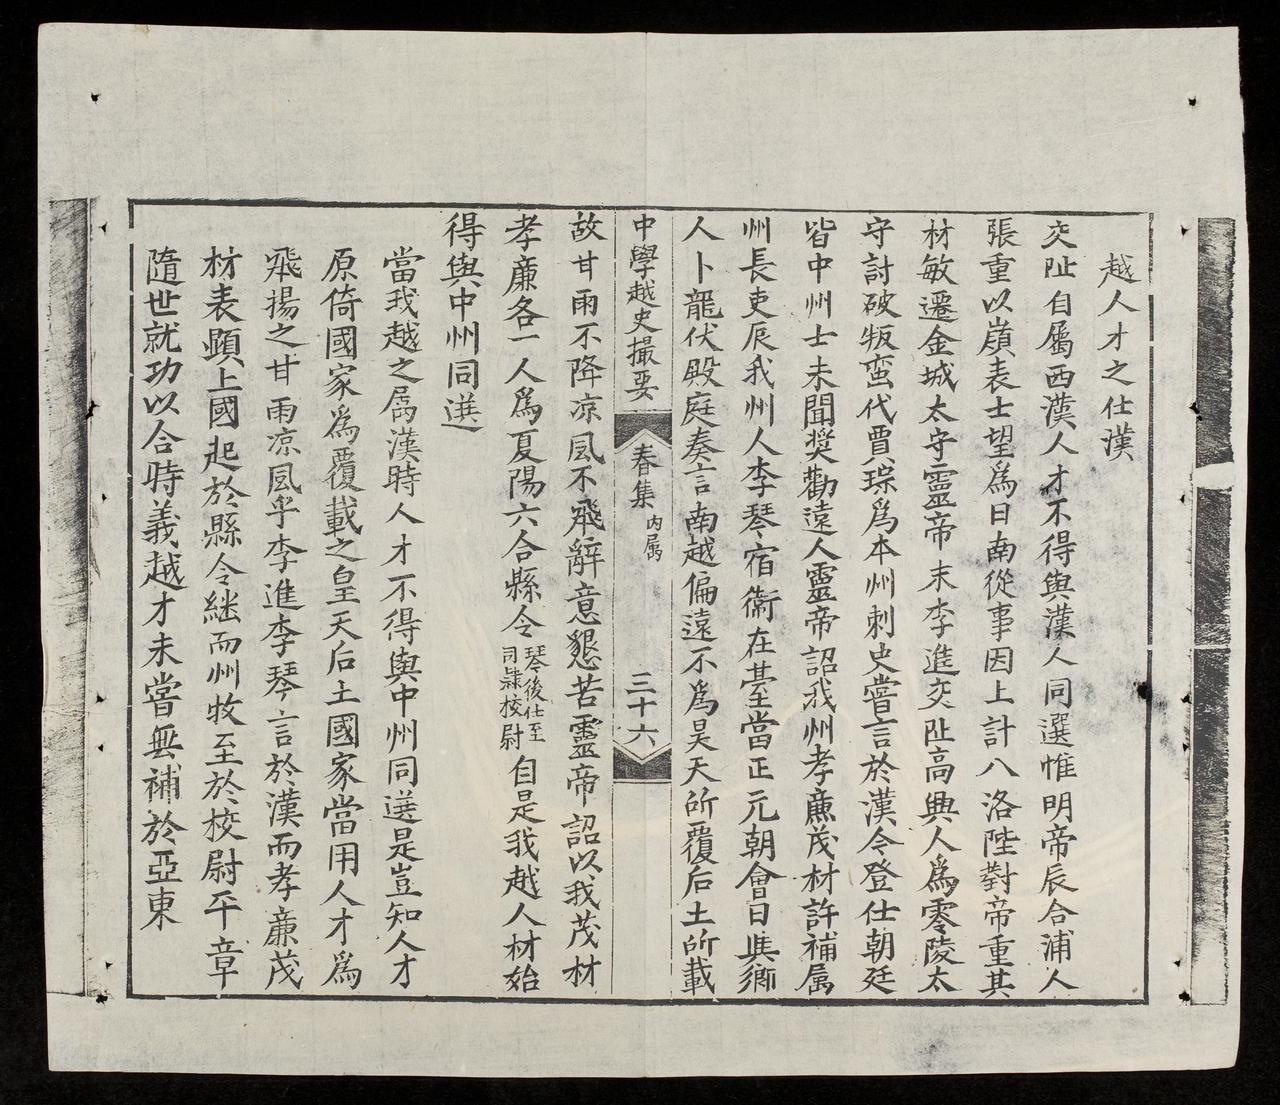 越人才之仕漢
交阯自屬西漢人才不得與漢人同選惟明帝辰合浦人
張重以嶺表士望爲日南從事因上計入洛陛對帝重其
材敏遷金城太守靈帝末李進交阯高興人爲零陵太
守討破叛蛮代賈琮爲本州刺史嘗言於漢令登仕朝廷
皆中州士未聞奬勸遠人靈帝詔我州孝廉茂材許補属
州長吏辰我州人李琴宿衞在䑓當正元朝會日與鄉
人卜龍伏殿庭奏言南越偏遠不爲昊天所覆后土所載
中學越史撮要
春集
内属
三十六
故甘雨不降凉風不飛辭意懇苦靈帝詔以我茂材
孝廉各一人爲夏陽六合縣令琴後仕至司隷校尉自是我越人材始
得與中州同選
當我越之属漢時人才不得與中州同選是豈知人才
原倚國家爲覆載之皇天后土國家當用人才爲
飛揚之甘雨凉風乎李進李琴言於漢而孝廉茂
材表顕上國起於縣令継而州牧至於校尉平章
隨世就功以合時義越才未嘗無補於亞東